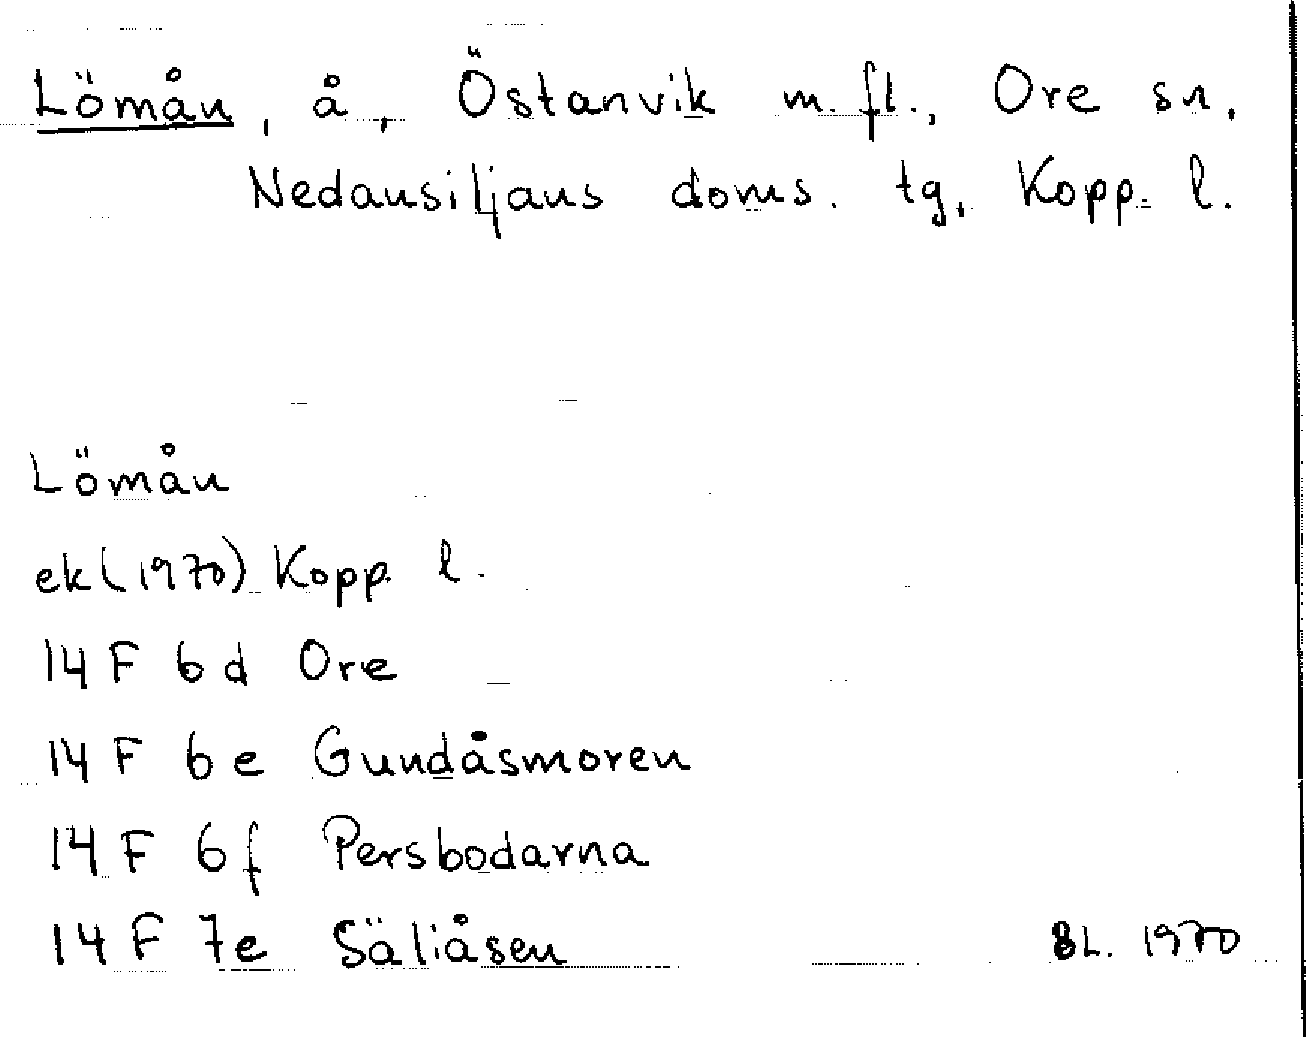 Lömån, å, Östanvik m.fl., Ore sn,
Nedansiljans doms. tg, Kopp. l.
Lömån
ek (1970) Kopp. l.
14 F 6d Ore
14 F 6e Gundåsmoren
14 F 6f Persbodarna
14 F 7e Säliåsen
BL. 1970